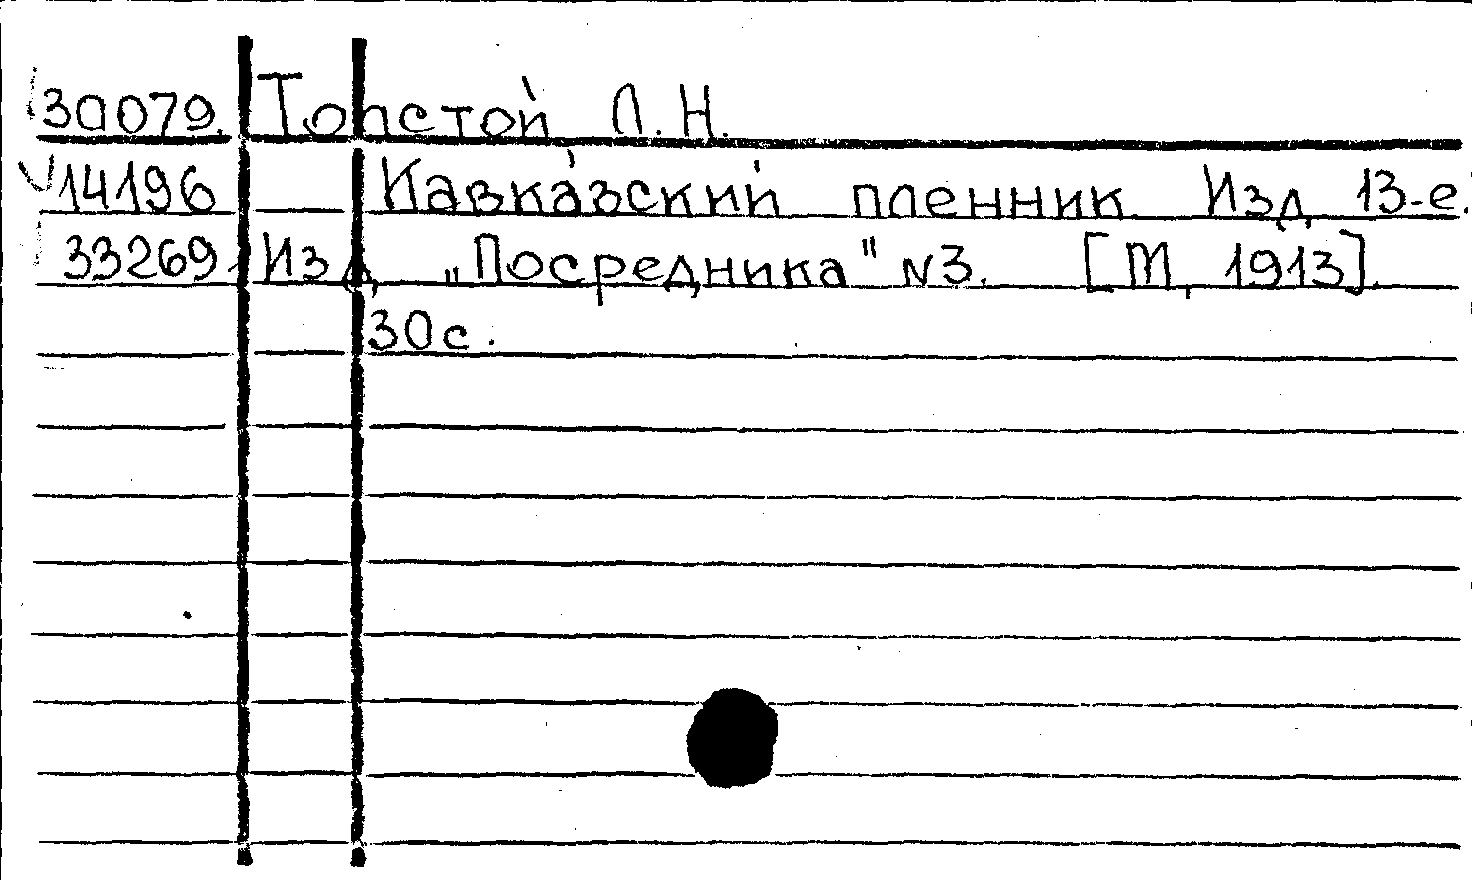 30079. Толстой Л.Н.
14196 Кавказский пленник Изд 13-е.
33269. Изд. „Посредника" N3. [М, 1913].
30с.